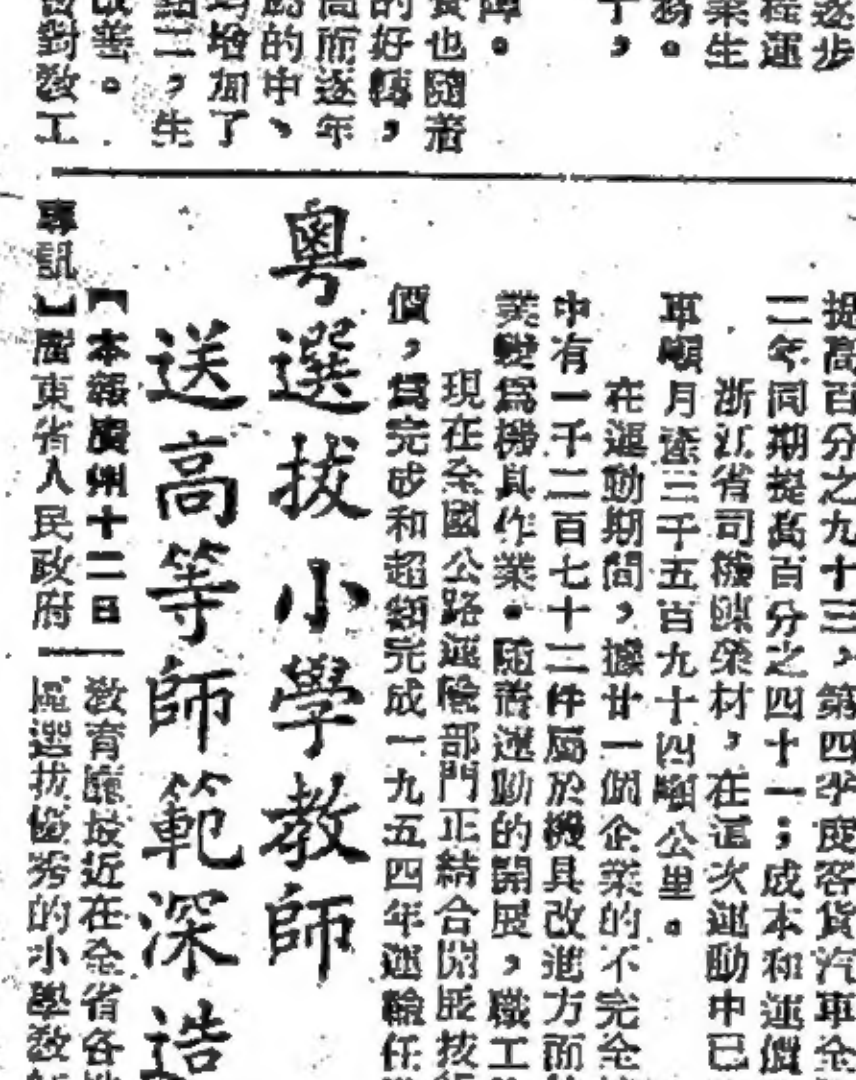 逐步
程運
業生
務。
障。
費也隨着
的好轉，
高而逐年
的中、
均增加了
點二，生
改善。
對敎工
提高百分之九十三，第四季度客貨汽車全
二年同期提高百分之四十一；成本和運價
浙江省司機陳榮材，在這次運動中已
車噸月達三千五百九十四噸公里。
在運動期間，據廿一個企業的不完全
中有一千二百七十二件屬於機具改進方面
業變爲機具作業。隨着運動的開展，職工
現在全國公路運輸部門正結合開展技
價，爲完成和超額完成一九五四年運輸任
粵選拔小學教師
送高等師範深造
【本報廣州十二日
專訊】廣東省人民政府
敎育廳最近在全省各地
區選拔優秀的小學敎